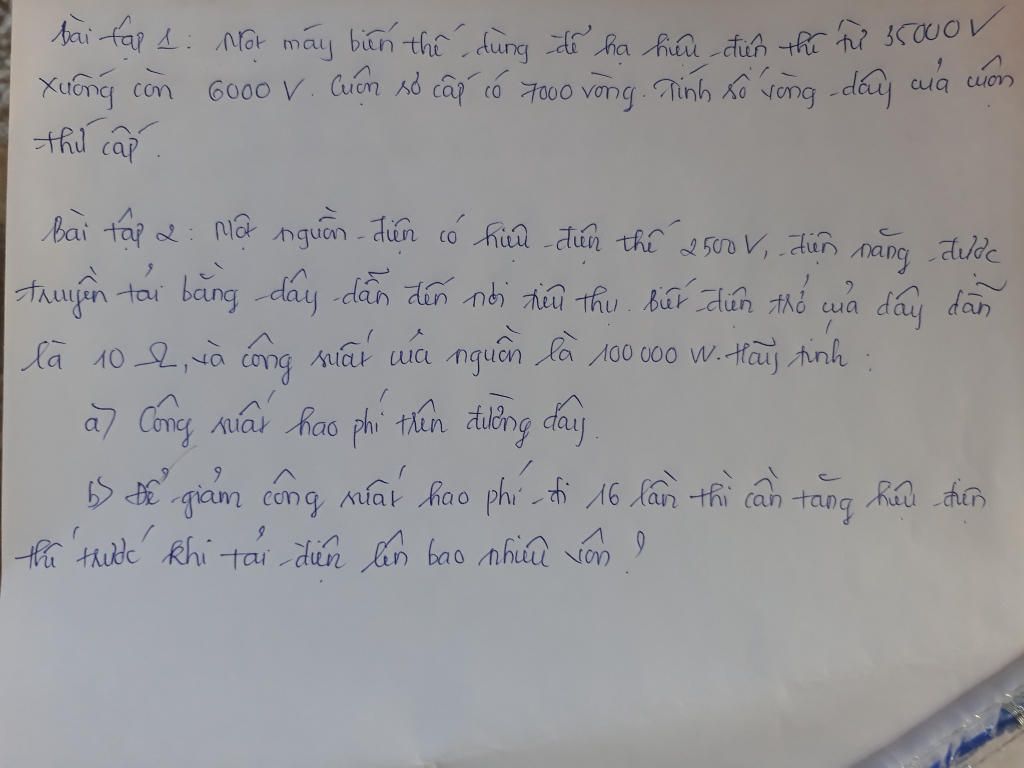 Bài tập 1: Một máy biến thế dùng để hạ hiệu điện thế từ 35000 V
xuống còn 6000 V. Cuộn sơ cấp có 7000 vòng. Tính số vòng dây của cuộn
thứ cấp.
Bài tập 2: Một nguồn điện có hiệu điện thế 2500V, điện năng được
truyền tải bằng dây dẫn đến nơi tiêu thụ. Biết điện trở của dây dẫn
là 10 Ω, và công suất của nguồn là 100 000 W. Hãy tính:
a) Công suất hao phí trên đường dây.
b) Để giảm công suất hao phí đi 16 lần thì cần tăng hiệu điện
thế trước khi tải điện lên bao nhiêu vôn?